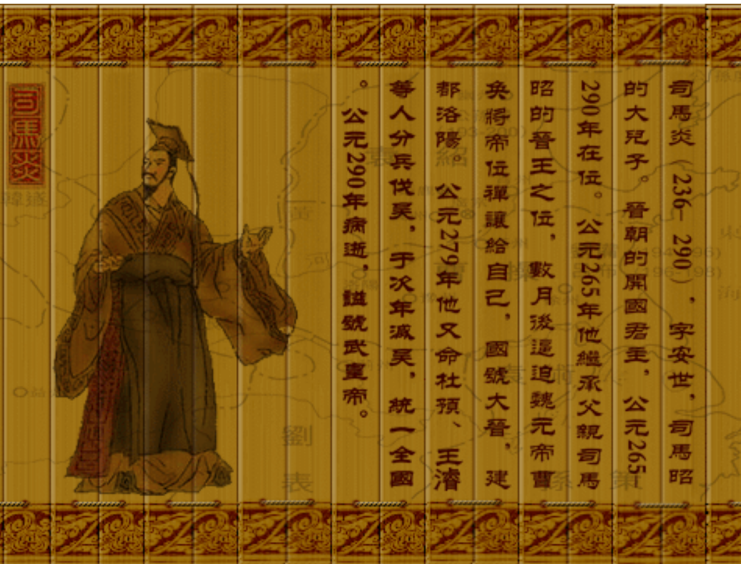 司馬炎（236—290），字安世，司馬昭
的大兒子。晉朝的開國君主，公元265
290年在位。公元265年他繼承父親司馬
昭的晉王之位，數月後逼迫魏元帝曹
奐將帝位禪讓給自己，國號大晉，建
都洛陽。公元279年他又命杜預、王濬
等人分兵伐吳，于次年滅吳，統一全國
。公元290年病逝，謚號武皇帝。
司馬炎
袁紹
劉表
孫策
韓遂